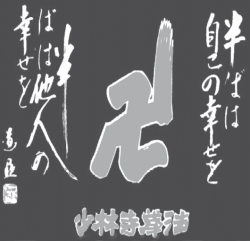 半ばは
自己の幸せを
半
ばは他人の
幸せを
道臣
卍
少林寺拳法